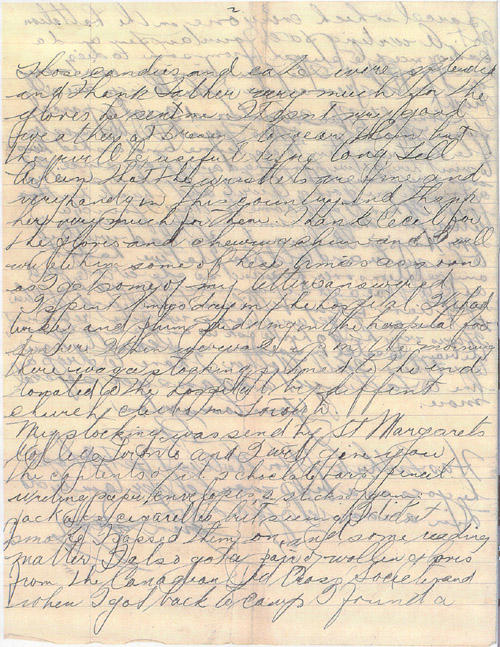 2
Those candies and cake were splendid
and thank Father very much for the
gloves he sent me. It isnt very good
weather at present to wear them but
they will be useful before long. Tell
that the wristlets are fine and
very handy in this country and thank
her very much for them. Thank Cecil for
the stories and chewing gum and I will
write him some of these times as soon
as I get some of my letters answered.
I spent Xmas day in the hospital. I had
turkey and plum pudding in the hospital too
so there when you wake up in the morning
there was a stocking pinned to the end
donated to the hospital by different
church clubs in Toronto.
My stocking was send by St Margarets
College Toronto and I will give you
the contents of it. 3 chocolate bars, pencil
writing paper, envelopes, 2 sticks of gum,
package of cigarettes but seeing I dont
smoke I passed them on, and some reading
matter. I also got a pair of wollen gloves
from the Canadian Red Cross Society and
when I got back to camp I found a